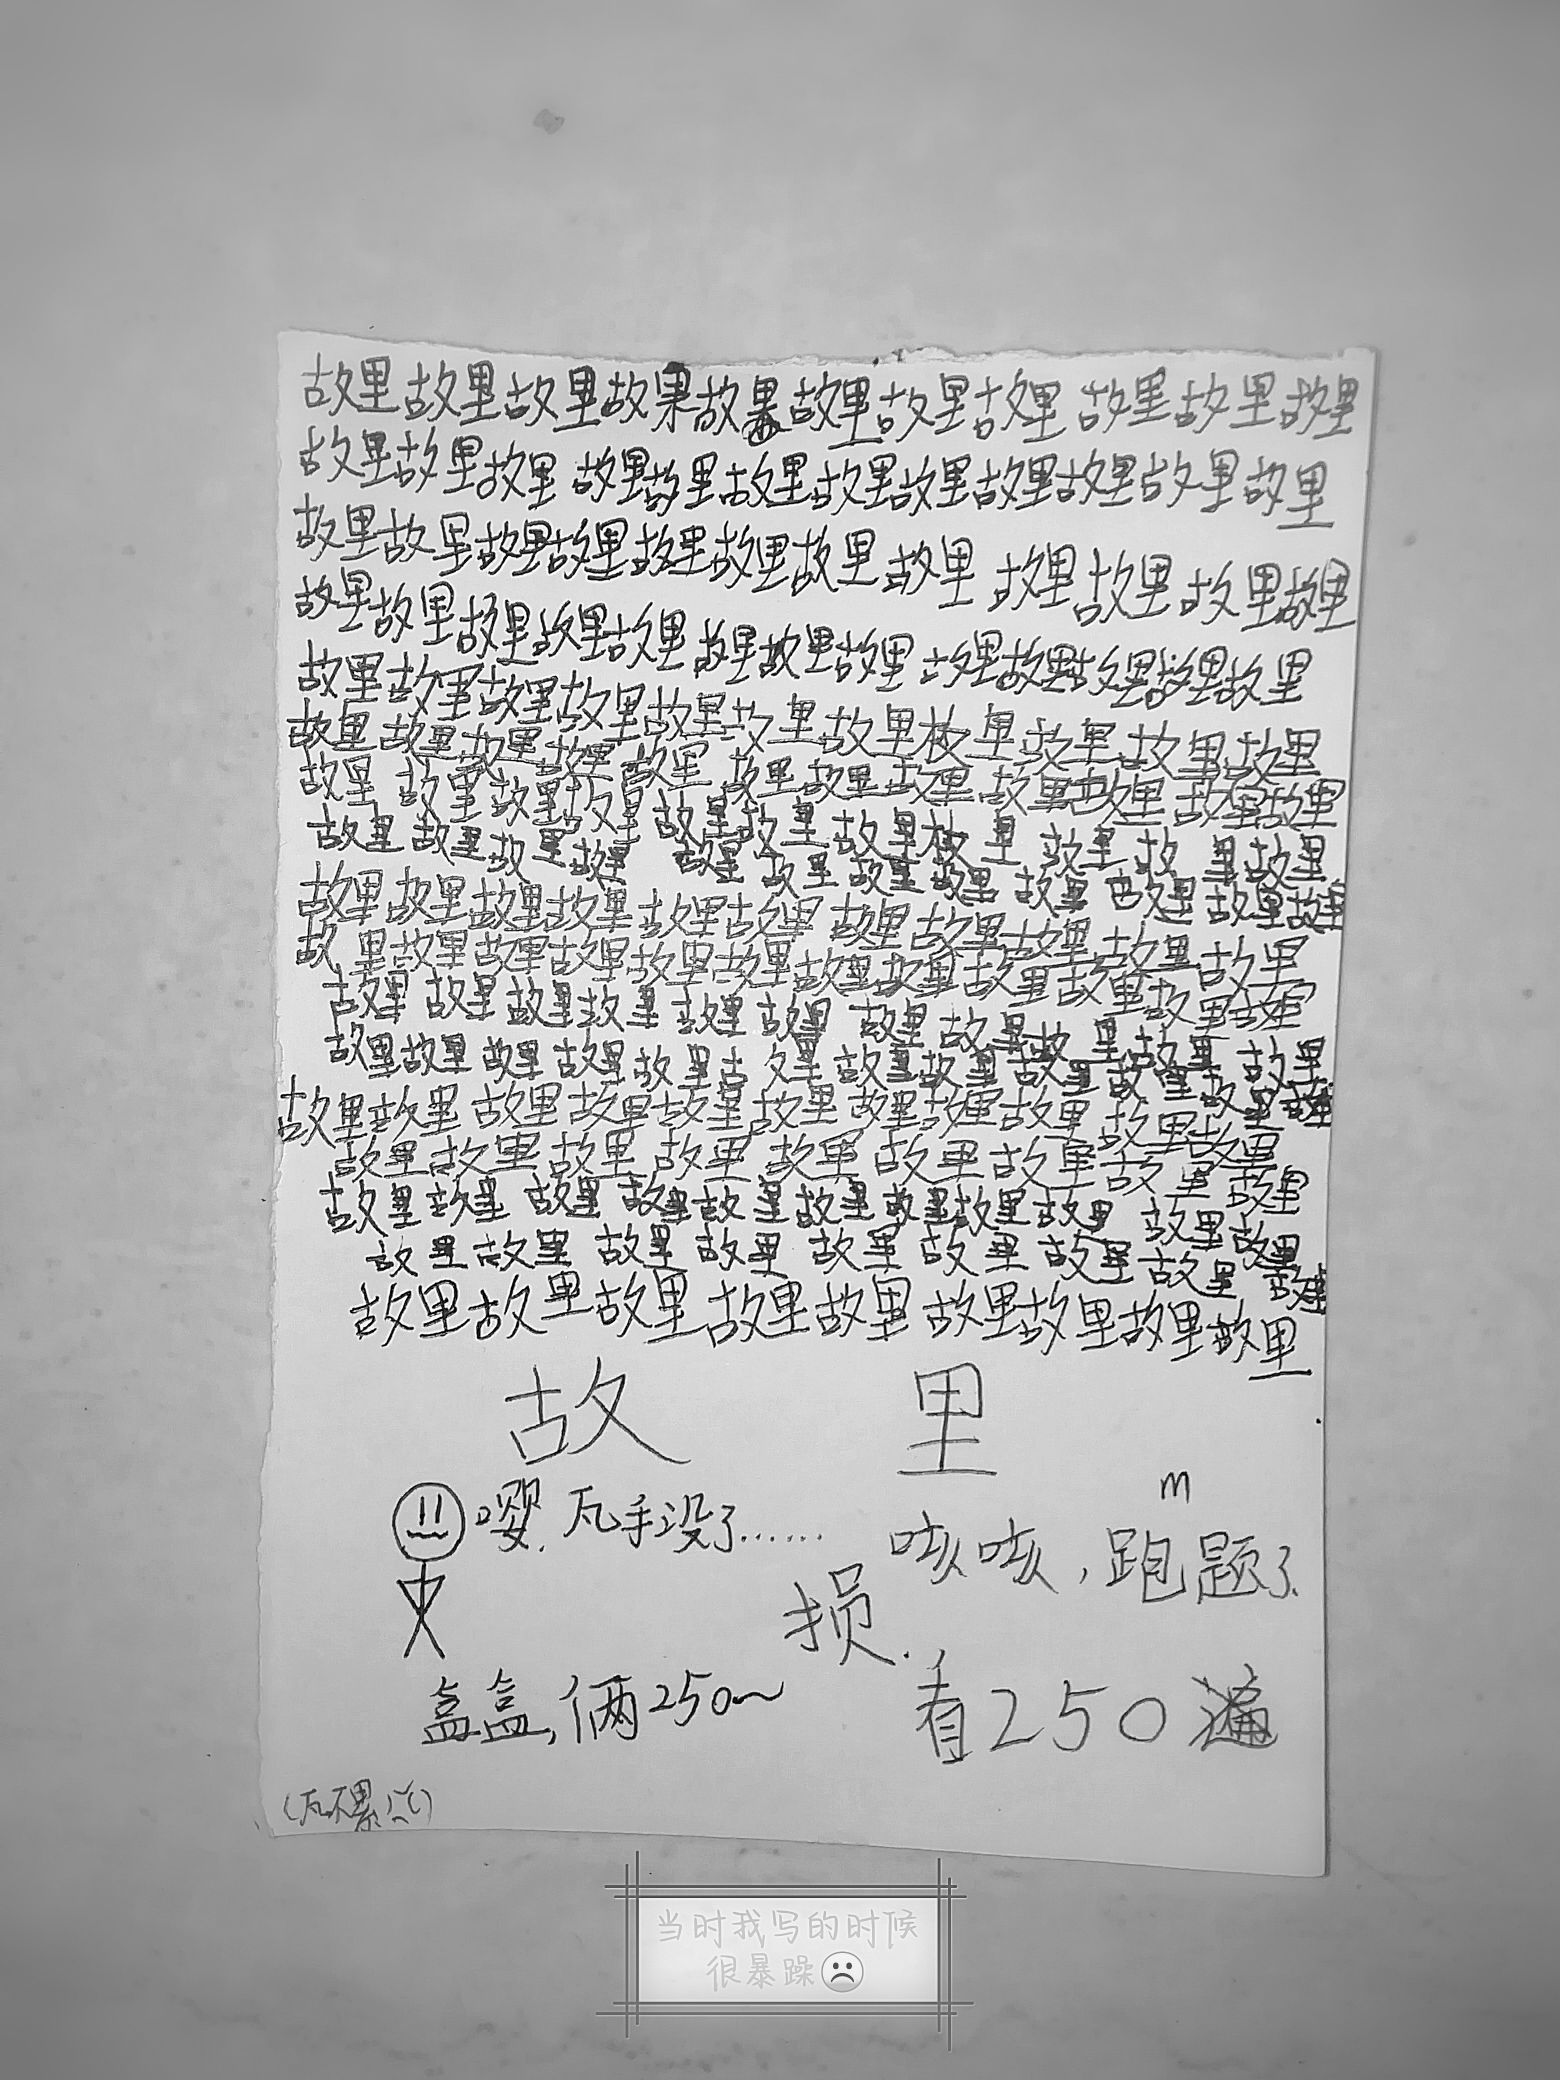 故里故里故里故果故里故里故里故里故里故里故里
故里故里故里故里故里故里故里故里故里故里故里故里
故里故里故里故里故里故里故里故里故里故里故里故里
故里故里故里故里故里故里故里故里故里故里故里故里故里
故里故里故里故里故里故里故里故里故里故里故里
故里故里故里故里故里故里故里故里故里故里故里故里
故里故里故里故里故里故里故里故里故里故里故里
故里故里故里故里故里故里故里故里故里故里故里故里
故里故里故里故里故里故里故里故里故里故里故里
故里故里故里故里故里故里故里故里故里故里故里故里
故里故里故里故里故里故里故里故里故里故里故里
故里故里故里故里故里故里故里故里故里故里故里故里
故里故里故里故里故里故里故里故里故里故里故里
故里故里故里故里故里故里故里故里故里故里
故里故里故里故里故里故里故里故里故里故里故里
故里故里故里故里故里故里故里故里故里
故里故里故里故里故里故里故里故里故里
故 里
嘤,瓦手没了……
咳咳,跑题了.
损.
盒盒,俩250~
看250遍
(瓦不累)
当时我写的时候
很暴躁☹